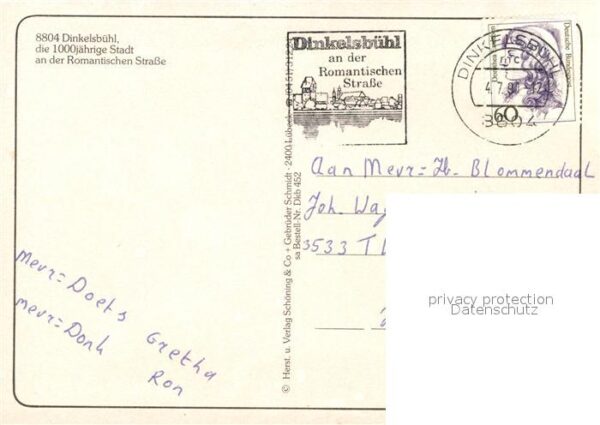 8804 Dinkelsbühl,
die 1000jährige Stadt
an der Romantischen Straße
Dinkelsbühl
an der
Romantischen
Straße
DINKELSBÜHL
8804
Deutsche Bundespost
60
© Herst. u. Verlag Schöning & Co + Gebrüder Schmidt · 2400 Lübeck
sa Bestell-Nr. Dkb 452
Aan Mevr= Blommendaal
Joh. Wag
3533 T
mevr= Doets
mevr= Donk
Gretha
Ron
privacy protection
Datenschutz